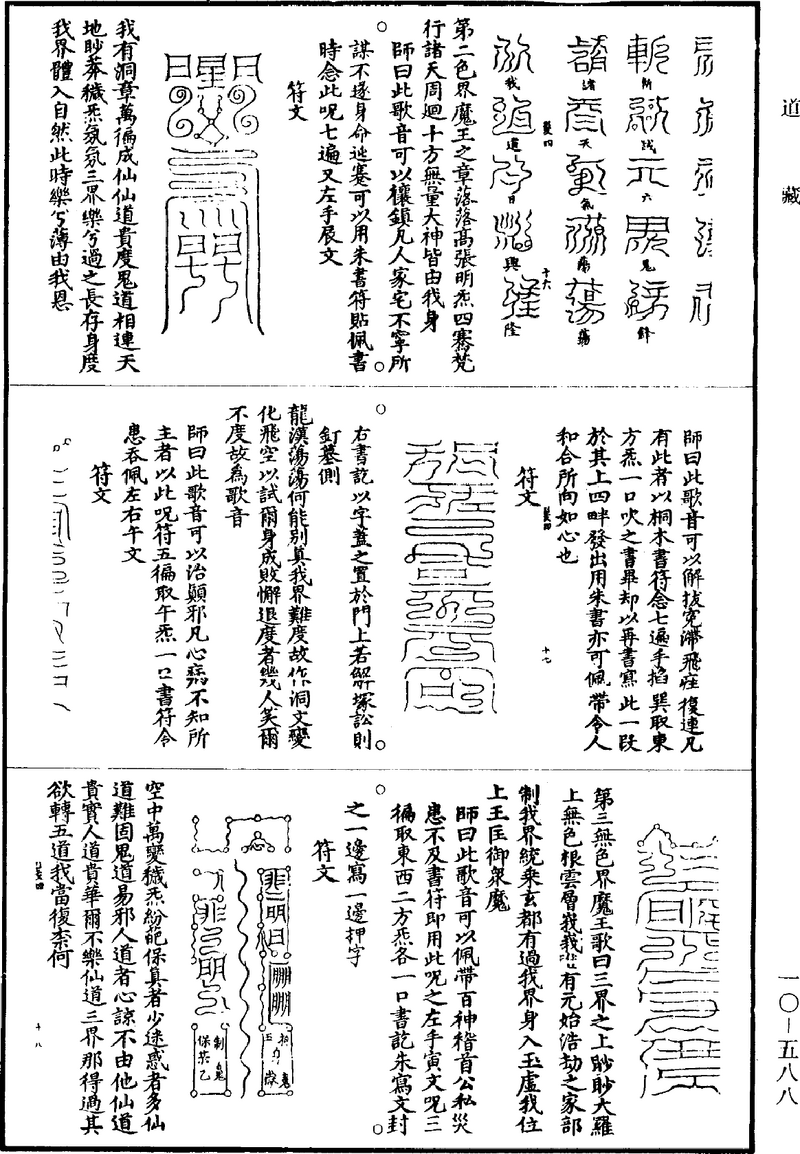 道藏
所 賊 六 鬼 鋒
諸 天 氣 蕩 蕩
我 道 日 興 隆
第二色界魔王之章落落高張明炁四騫梵
行諸天周迴十方無量大神皆由我身
師曰此歌音可以禳鎮凡人家宅不寧所
謀不遂身命迍蹇可以用朱書符貼佩書
時念此呪七遍又左手辰文
符文
我有洞章萬徧成仙仙道貴度鬼道相連天
地眇莽穢炁氛氛三界樂兮過之長存身度
我界體入自然此時樂兮薄由我恩
師曰此歌音可以解拔冤滯飛痊復連凡
有此者以桐木書符念七遍手掐巽取東
方炁一口吹之書畢却以再書寫此一段
於其上四畔發出用朱書亦可佩帶令人
和合所向如心也
符文
十七
右書訖以字蓋之置於門上若解塚訟則
釘墓側
龍漢蕩蕩何能別真我界難度故作洞文變
化飛空以試爾身成敗懈退度者幾人笑爾
不度故為歌音
師曰此歌音可以治顛邪凡心病不知所
主者以此呪符五徧取午炁一口書符令
患吞佩左右午文
符文
第三無色界魔王歌曰三界之上眇眇大羅
上無色根雲層峩峩唯有元始浩劫之家部
制我界統乘玄都有過我界身入玉虛我位
上王匡御衆魔
師曰此歌音可以佩帶百神稽首公私災
患不及書符即用此呪之左手寅文呪三
徧取東西二方炁各一口書訖朱寫文封
之一邊寫一邊押字
符文
空中萬變穢炁紛葩保真者少迷惑者多仙
道難固鬼道易邪人道者心諒不由他仙道
貴實人道貴華爾不樂仙道三界那得過其
欲轉五道我當復柰何
十八
一〇—五八八